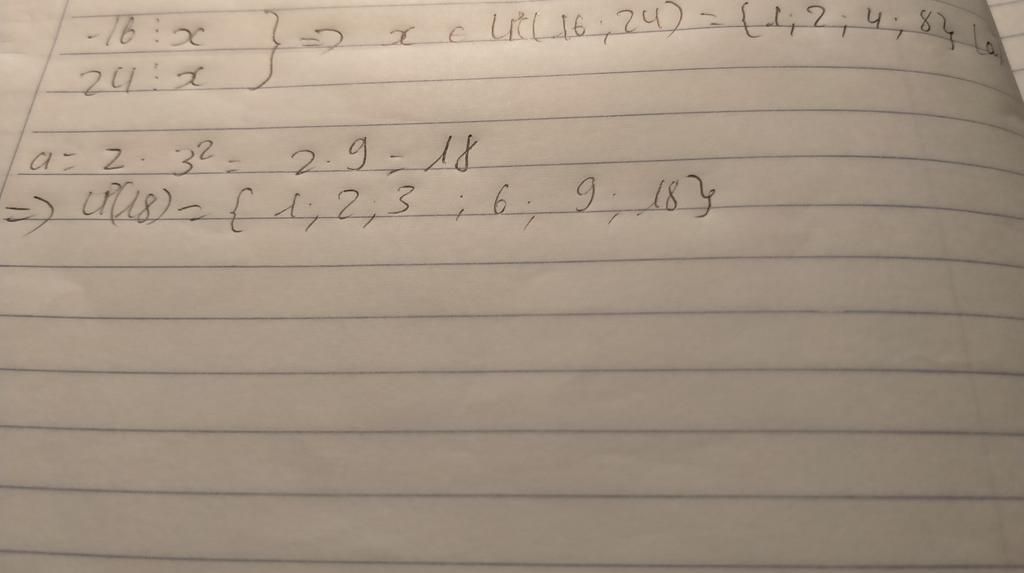 -16 ⋮ x
24 ⋮ x } => x ∈ ƯC(16; 24) = {1; 2; 4; 8}
a = 2 · 3² = 2 · 9 = 18
=> Ư(18) = { 1; 2; 3 ; 6; 9; 18}